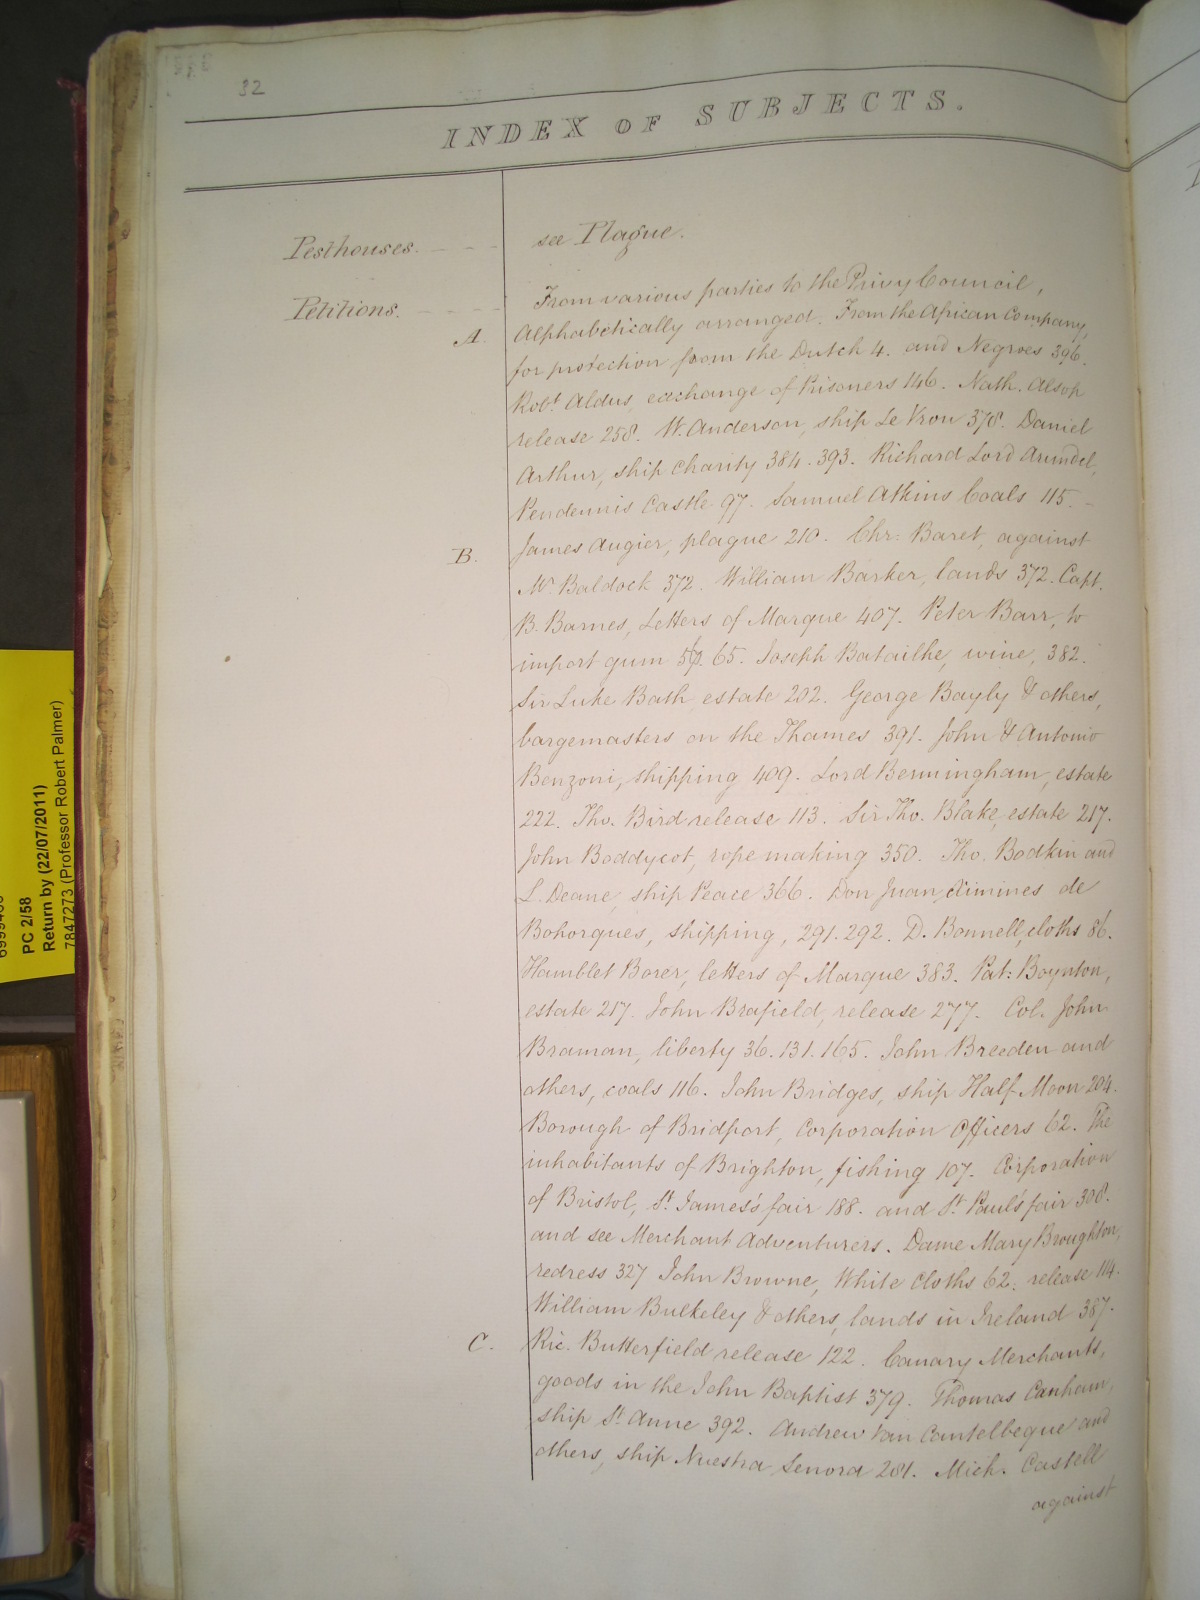 32
INDEX OF SUBJECTS.
Pesthouses. - - - see Plague.
Petitions. - - - - From various parties to the Privy Council,
A. Alphabetically arranged. From the African Company,
for protection from the Dutch 4. and Negroes 396.
Robt. Aldus, exchange of Prisoners 146. Nath. Alsop
release 258. W. Anderson, ship Le Vrou 378. Daniel
Arthur, ship Charity 384. 393. Richard Lord Arundel,
Pendennis Castle 97. Samuel Atkins Coals 115. -
James Augier, plague 210. Chr: Baret, against
B. Mr. Baldock 372. William Barker, lands 372. Capt.
B. Barnes, Letters of Marque 407. Peter Barr, to
import gum 65. Joseph Batailhe, wine, 382.
Sir Luke Bath estate 202. George Bayly & others,
bargemasters on the Thames 391. John & Antonio
Benzoni, shipping 409. Lord Bermingham, estate
222. Tho. Bird release 113. Sir Tho. Blake, estate 217.
John Boddycot, rope making 350. Tho. Bodkin and
L. Deane, ship Peace 366. Don Juan Ximines de
Bohorques, shipping, 291. 292. D. Bonnell, cloths 86.
Hamblet Borer, letters of Marque 383. Pat: Boynton,
estate 217. John Brafield, release 277. Col. John
Braman, liberty 36. 131. 165. John Breeden and
others, coals 116. John Bridges, ship Half Moon 204.
Borough of Bridport, Corporation Officers 62. The
inhabitants of Brighton, fishing 107. Corporation
of Bristol, St. James's fair 188. and St. Paul's fair 308.
and see Merchant Adventurers. Dame Mary Broughton,
redress 327 John Browne, White Cloths 62: release 114.
William Bulkeley & others, lands in Ireland 387.
C. Ric. Butterfield release 122. Canary Merchants,
goods in the John Baptist 379. Thomas Canham,
ship St. Anne 392. Andrew Van Cantelbeque and
others, ship Nuestra Senora 281. Mich. Castell
against
PC 2/58
Return by (22/07/2011)
7847273 (Professor Robert Palmer)